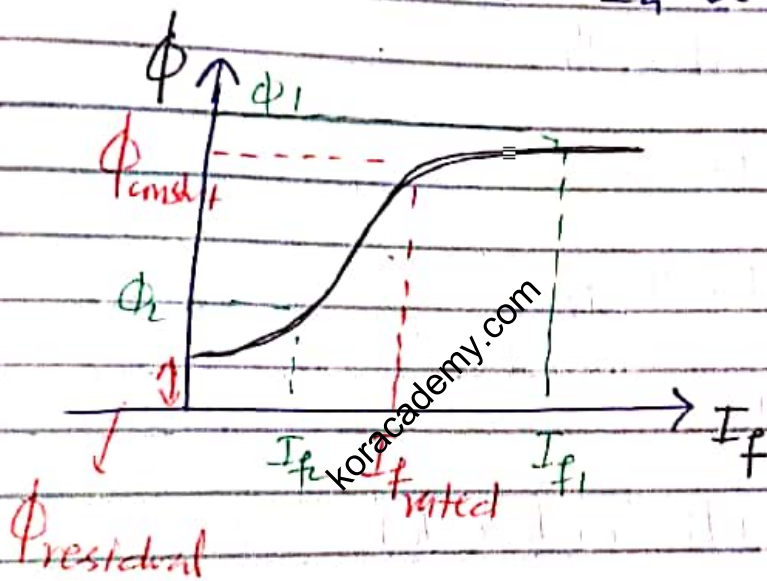 ϕ
ϕ1
ϕconst
ϕ2
If
If2
If rated
If1
ϕresidual
koracademy.com